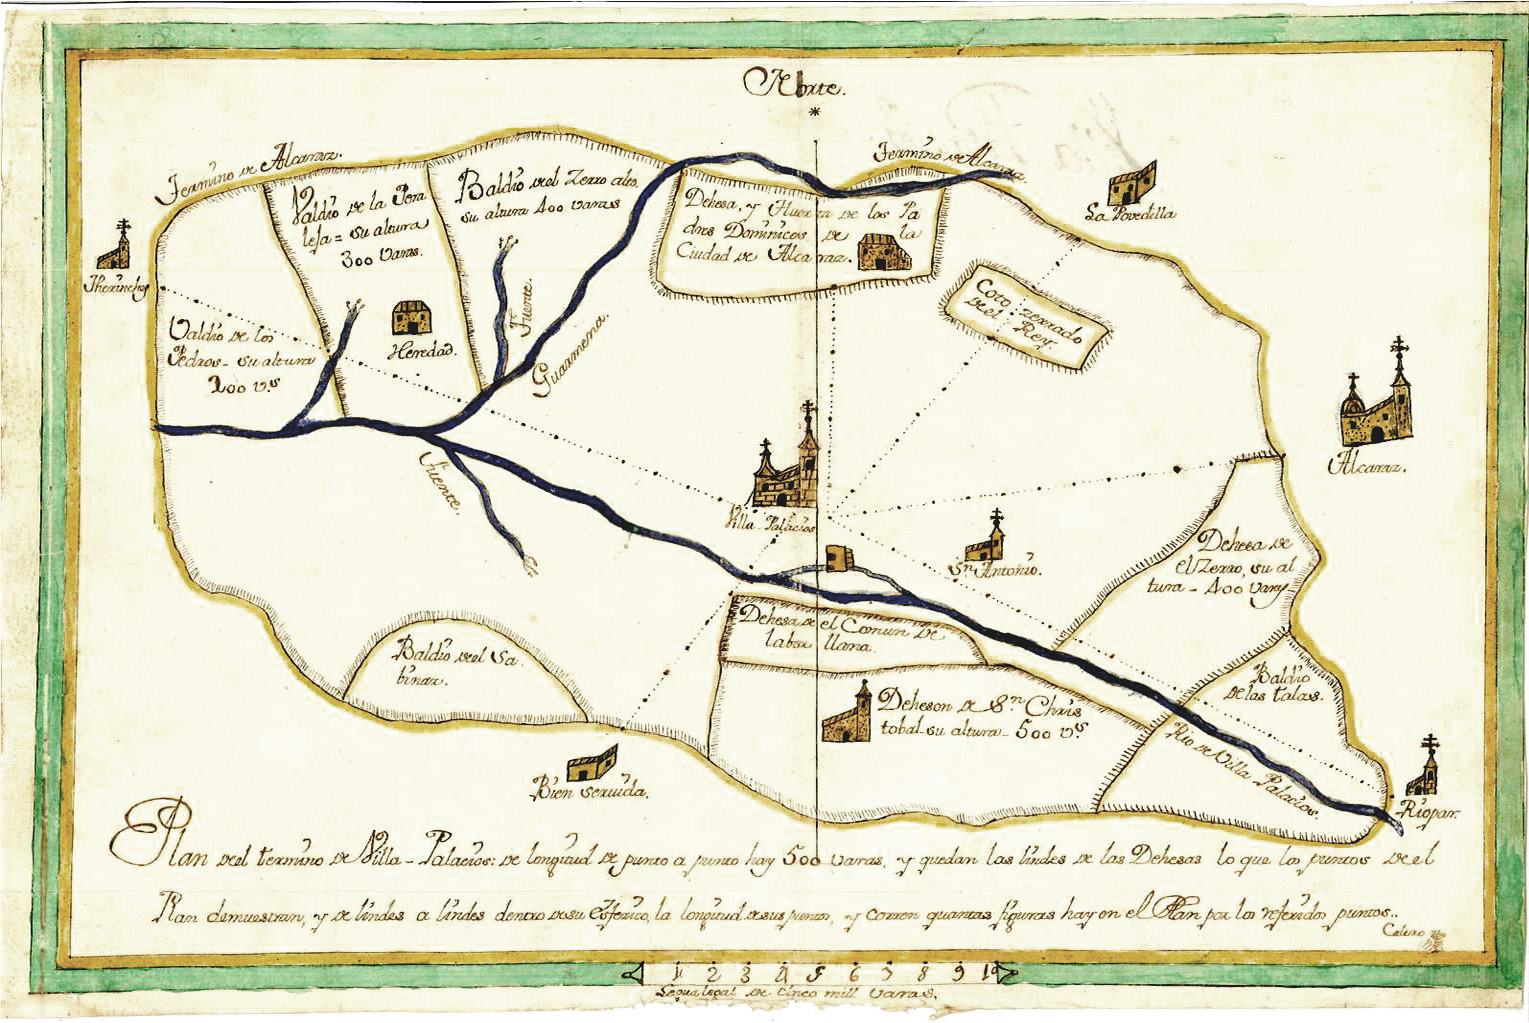 Norte.
Termino de Alcaraz.
Termino de Alcaraz.
La Povedilla
Valdio de la Pera
lesa = su altura
300 varas.
Baldio de el Zerro alto.
su altura 400 varas
Dehesa, y Huerta de los Pa
dres Dominicos de la
Ciudad de Alcaraz.
Coto zerrado
de el Rey.
Valdio de los
Pedros - su altura
200 v.s
Heredad.
Fuente
Guarmena.
Alcaraz.
Fuente.
Villa-Palacios
Sn. Antonio.
Dehesa de
el Zerro, su al
tura - 400 varas
Dehesa de el Comun de
labor llana.
Baldio de el Sa
binar.
Baldio
de las talas.
Deheson de Sn. Chris
tobal - su altura - 500 v.s
Rio de Villa Palacios.
Riopar.
Bien Servida.
Plan de el termino de Villa-Palacios: de longitud de punto a punto hay 500 varas, y quedan las lindes de las Dehesas lo que los puntos de el
Plan demuestran, y de lindes a lindes dentro de su Esferico, la longitud de sus puntos, y corren quantas figuras hay en el Plan por los referidos puntos..
Calero
1 2 3 4 5 6 7 8 9 10
Legua legal de cinco mill varas.